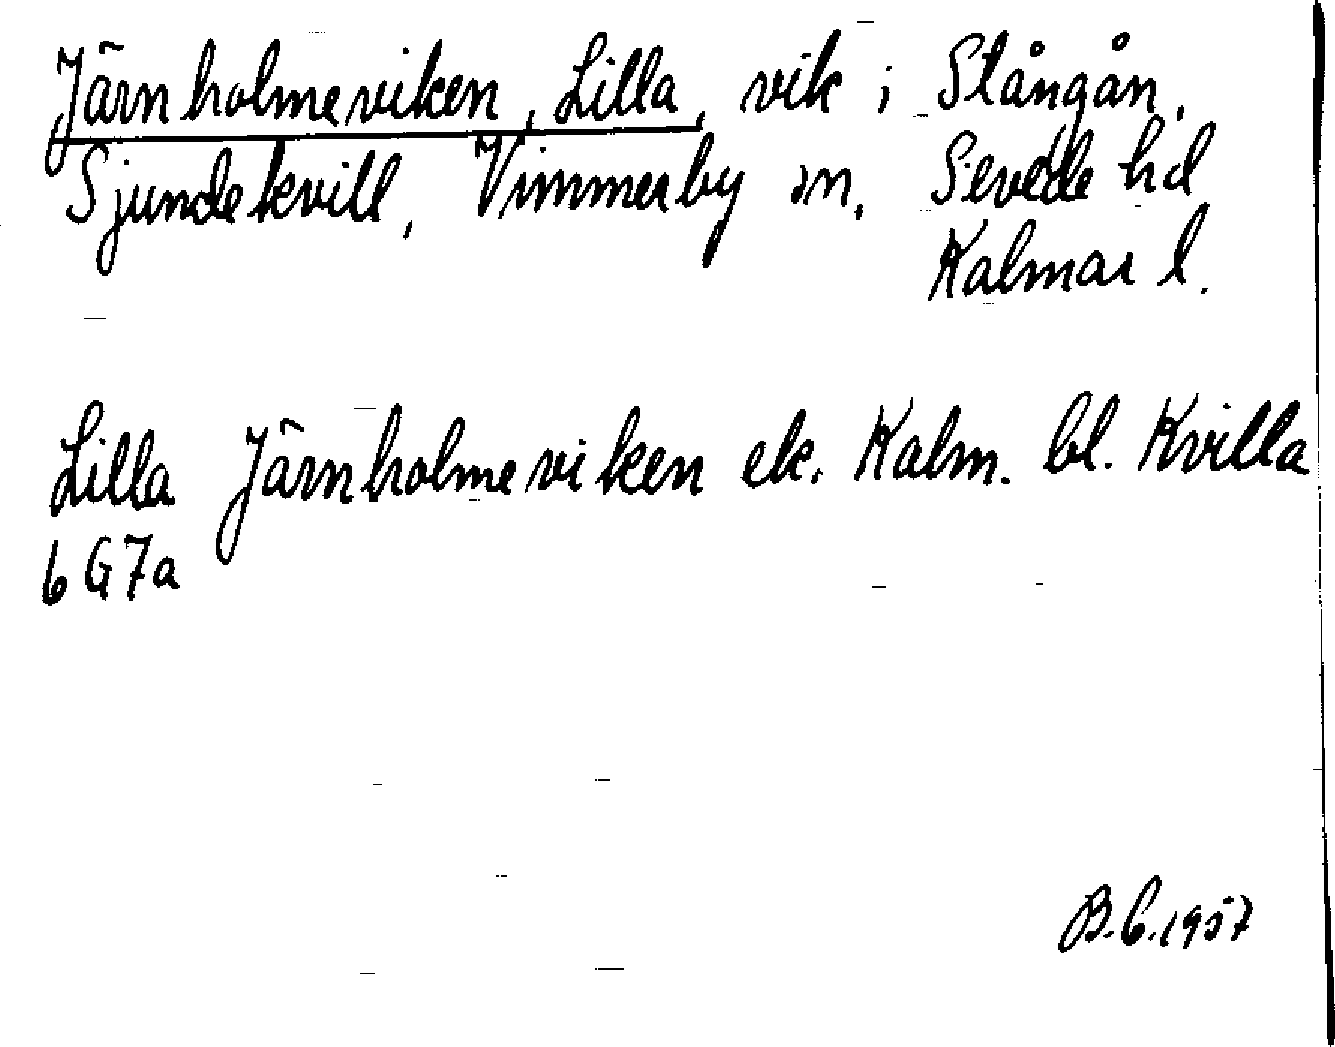 Järnholmeviken, Lilla, vik i Stångån,
Sjundekvill, Vimmerby sn, Sevede hd
Kalmar l.
Lilla Järnholmeviken ek. Kalm. bl. Kvilla
6 G 7a
B.C. 1957